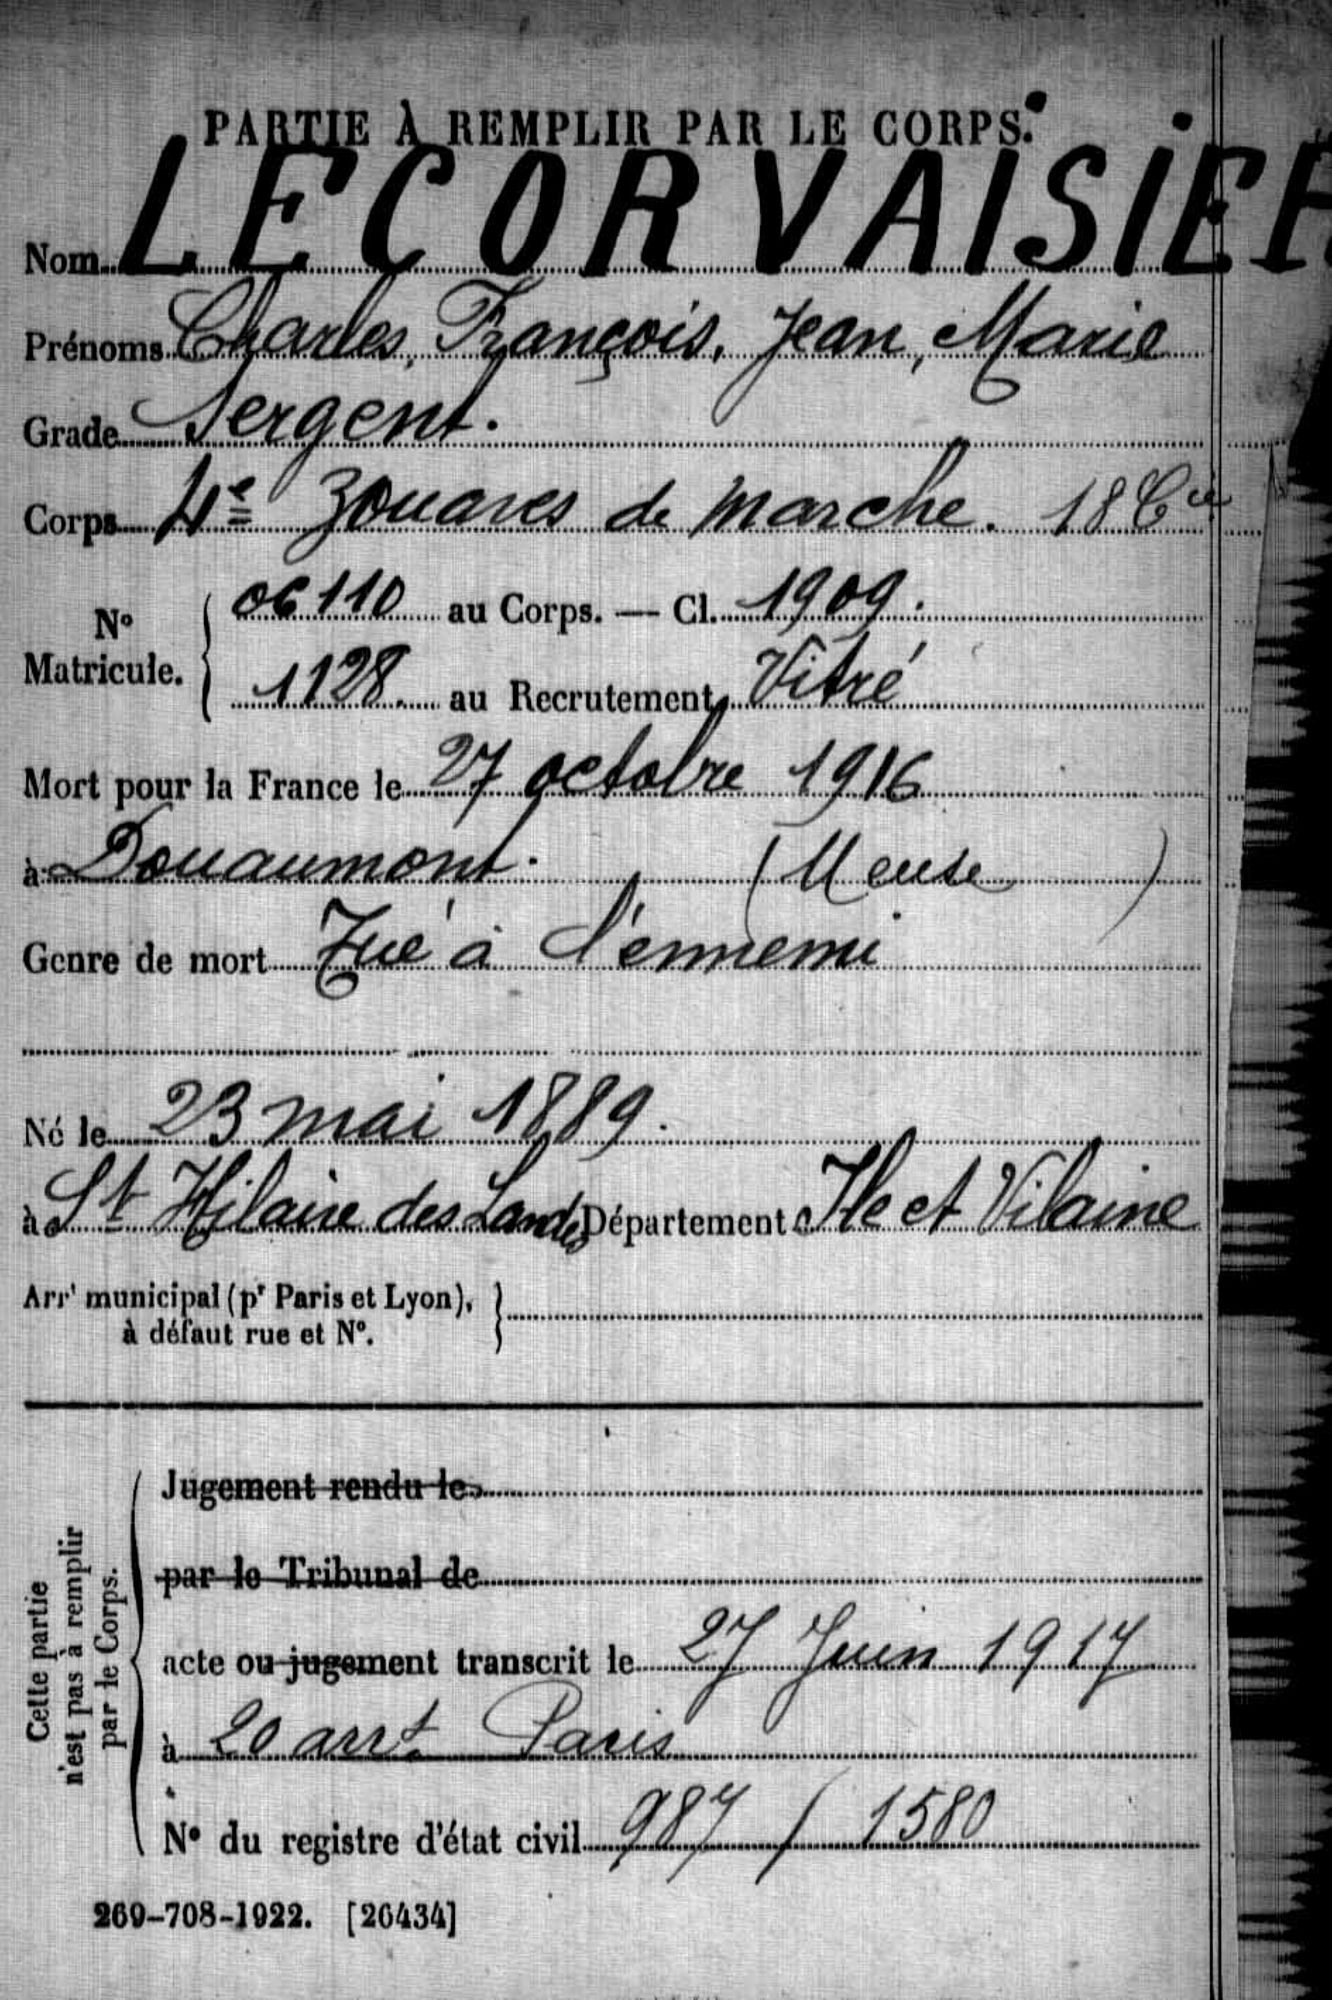 PARTIE À REMPLIR PAR LE CORPS.
Nom LECORVAISIER
Prénoms Charles, François, Jean, Marie
Grade Sergent.
Corps 4e Zouaves de marche. 18 Cie
No Matricule. { 06110 au Corps. — Cl. 1909.
1128. au Recrutement Vitré
Mort pour la France le 27 octobre 1916
à Douaumont. (Meuse)
Genre de mort Tué à l'ennemi
Né le 23 mai 1889.
à St Hilaire des Landes Département Ile et Vilaine
Arrt municipal (pr Paris et Lyon), }
à défaut rue et No.
Cette partie
n'est pas à remplir
par le Corps.
Jugement rendu le
par le Tribunal de
acte ou jugement transcrit le 27 Juin 1917
à 20 arrt. Paris
No du registre d'état civil 987 / 1580
269-708-1922. [26434]